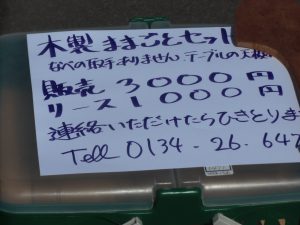 木製 ままごとセット
なべの取手ありません テーブルの
販売 3000円
リース 1000円
連絡いただけたらひきとりま
Tell 0134・26・647